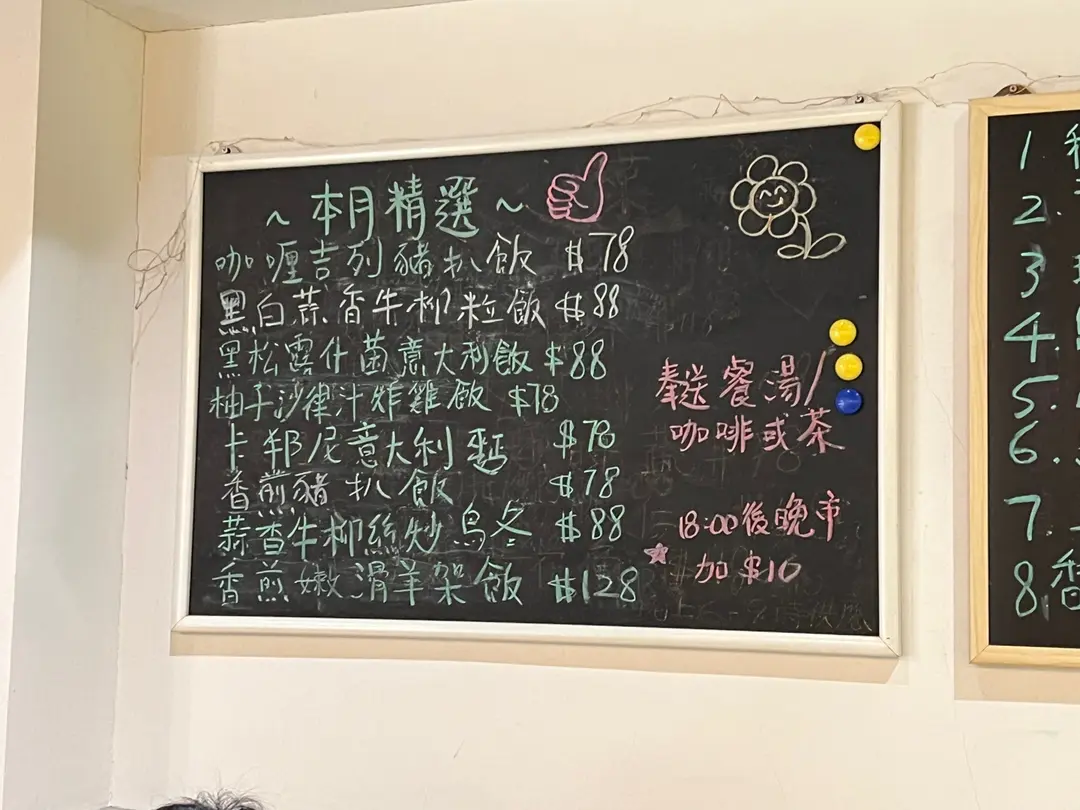 ~ 本月精選 ~
咖喱吉列豬扒飯 $78
黑白蒜香牛柳粒飯 $88
黑松露什菌意大利飯 $88
柚子沙律汁炸雞飯 $78
卡邦尼意大利麵 $78
香煎豬扒飯 $78
蒜香牛柳絲炒烏冬 $88
香煎嫩滑羊架飯 $128
奉送餐湯/
咖啡或茶
18:00後晚市
加 $10
1.
2.
3
4.
5.
6.
7.
8.香